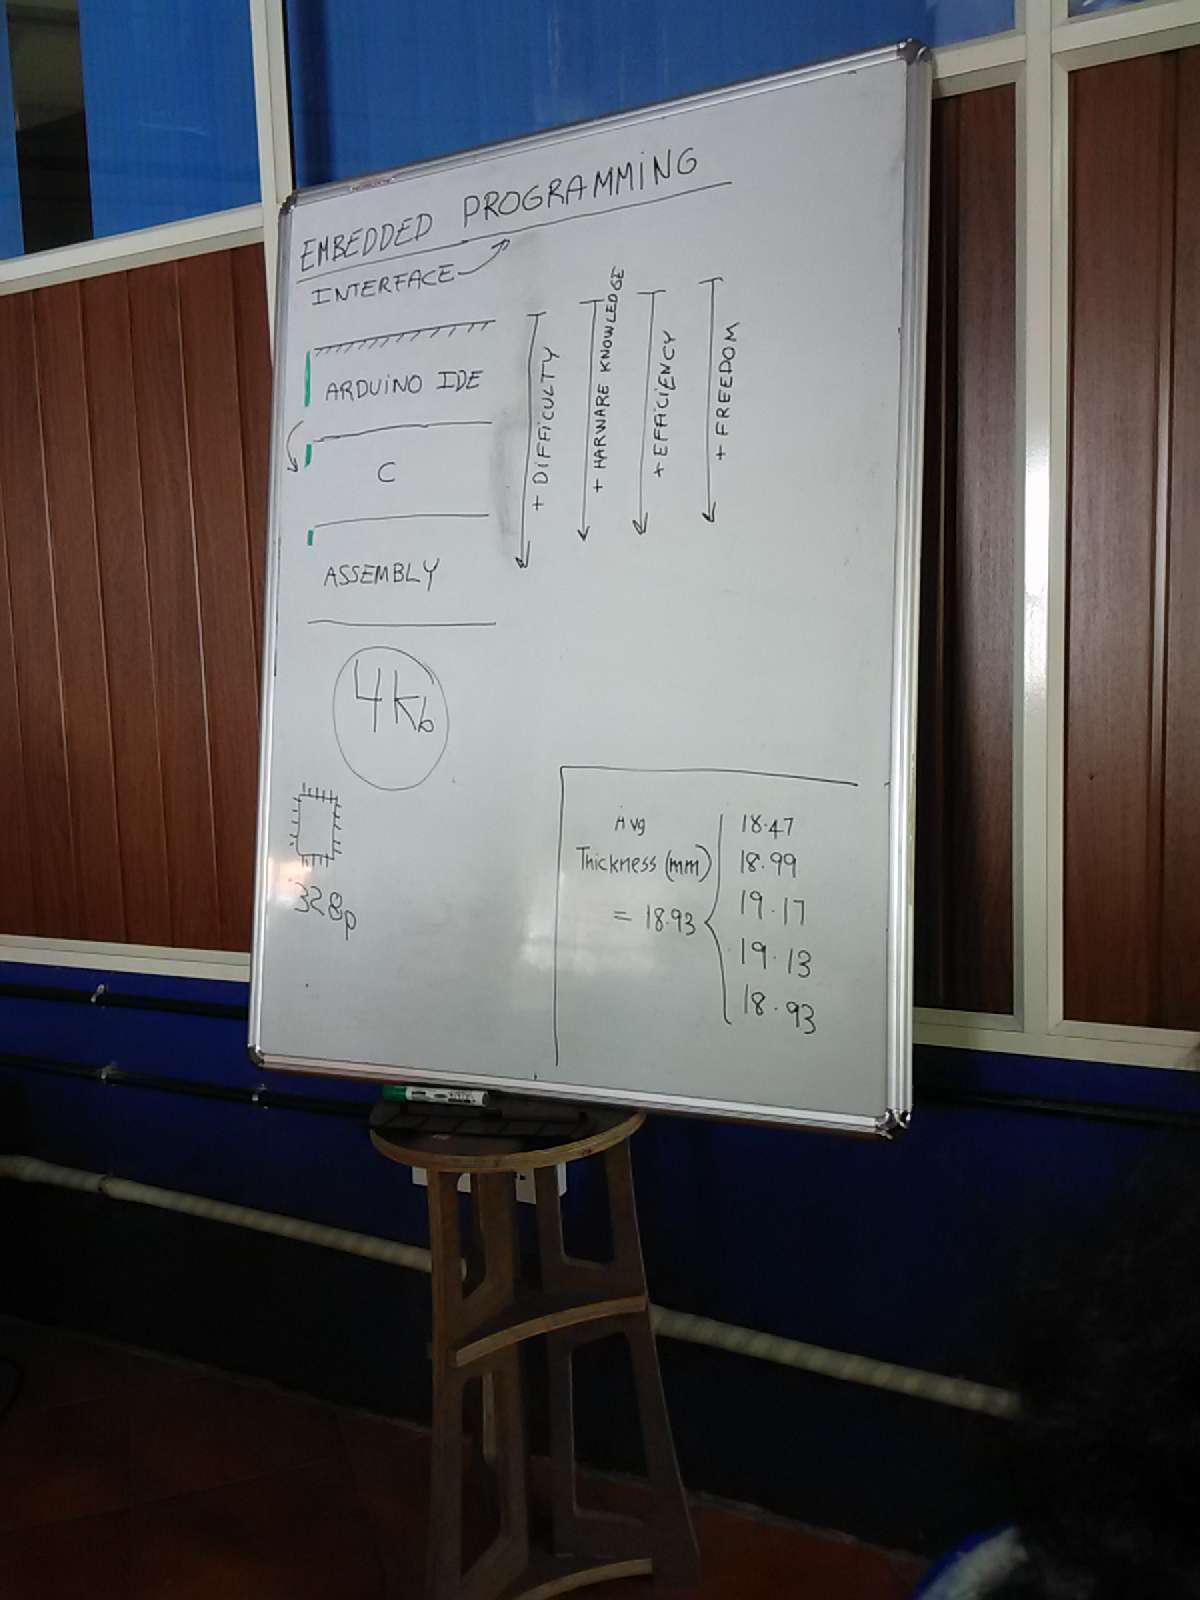 EMBEDDED PROGRAMMING
INTERFACE
ARDUINO IDE
C
ASSEMBLY
+ DIFFICULTY
+ HARWARE KNOWLEDGE
+ EFFICIENCY
+ FREEDOM
4Kb
328p
Avg
Thickness (mm)
= 18.93
18.47
18.99
19.17
19.13
18.93